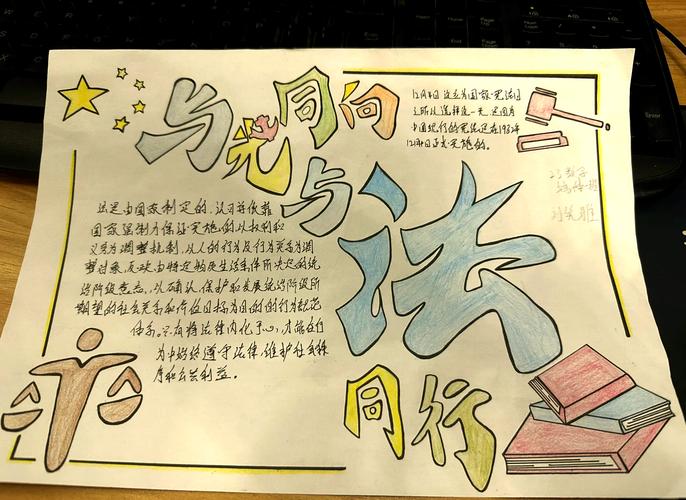 与光同向
与法
同行
12月4日设立为国家宪法日
之所以选择这一天,是因为
中国现行的宪法是在1982年
12月4日正式实施的。
法是由国家制定的、认可并依靠
国家强制力保证实施的,以权利和
义务为调整机制,以人的行为及行为关系为调
整对象,反映由特定物质生活条件所决定的统
治阶级意志,以确认、保护和发展统治阶级所
期望的社会关系和价值目标为目的的行为规范
体系。只有将法律内化于心,才能在行
为中好好遵守法律,维护社会秩
序和公共利益。
23数学